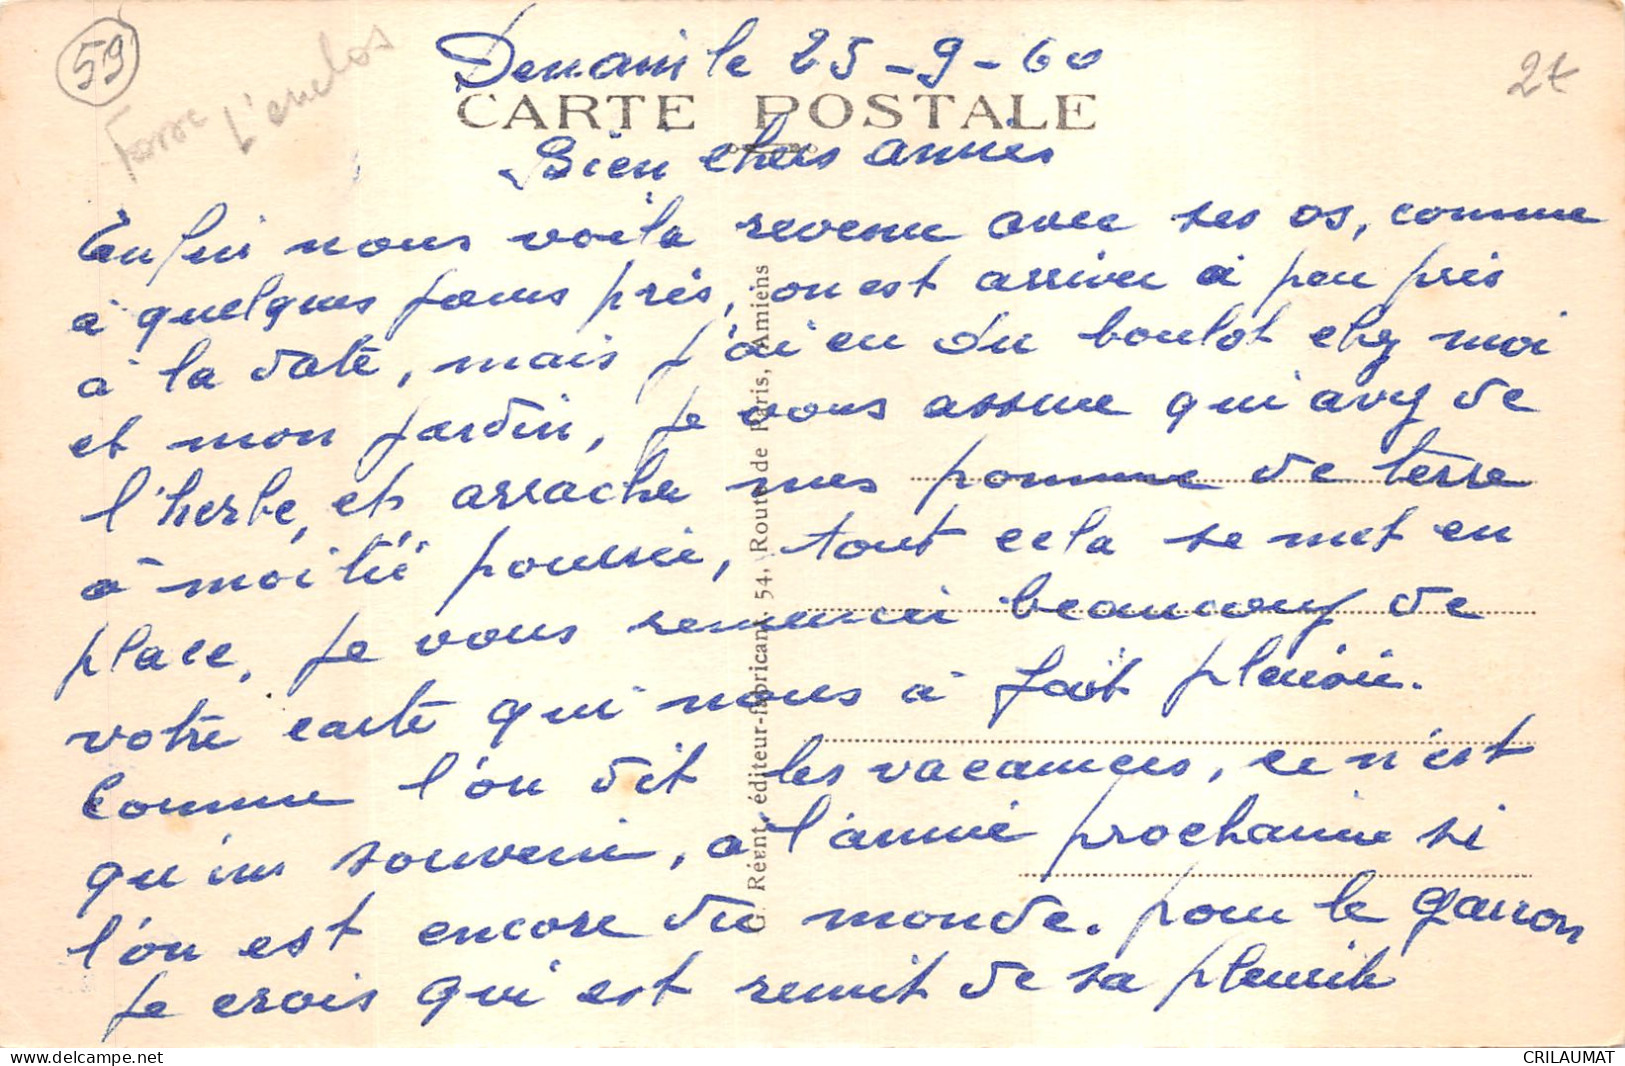 59
Fosse
L'enclos
2€
Denain le 25-9-60
CARTE POSTALE
Bien chers amies
Enfin nous voila revenu avec ses os, comme
à quelques jours près, on est arriver à peu près
à la date, mais j'ai eu du boulot chez moi
et mon jardin, je vous assure qui avez de
l'herbe, et arracher mes pomme de terre
à moitié poussie, tout cela se met en
place, je vous remercie beaucoup de
votre carte qui nous à fait plaisir.
Comme l'on dit les vacances, ce n'est
qu'un souvenir, a l'année prochaine si
l'on est encore du monde. pour le garçon
je crois qui est remit de sa pleurite
G. Réant, éditeur-fabricant, 54, Route de Paris, Amiens
CRILAUMAT
www.delcampe.net